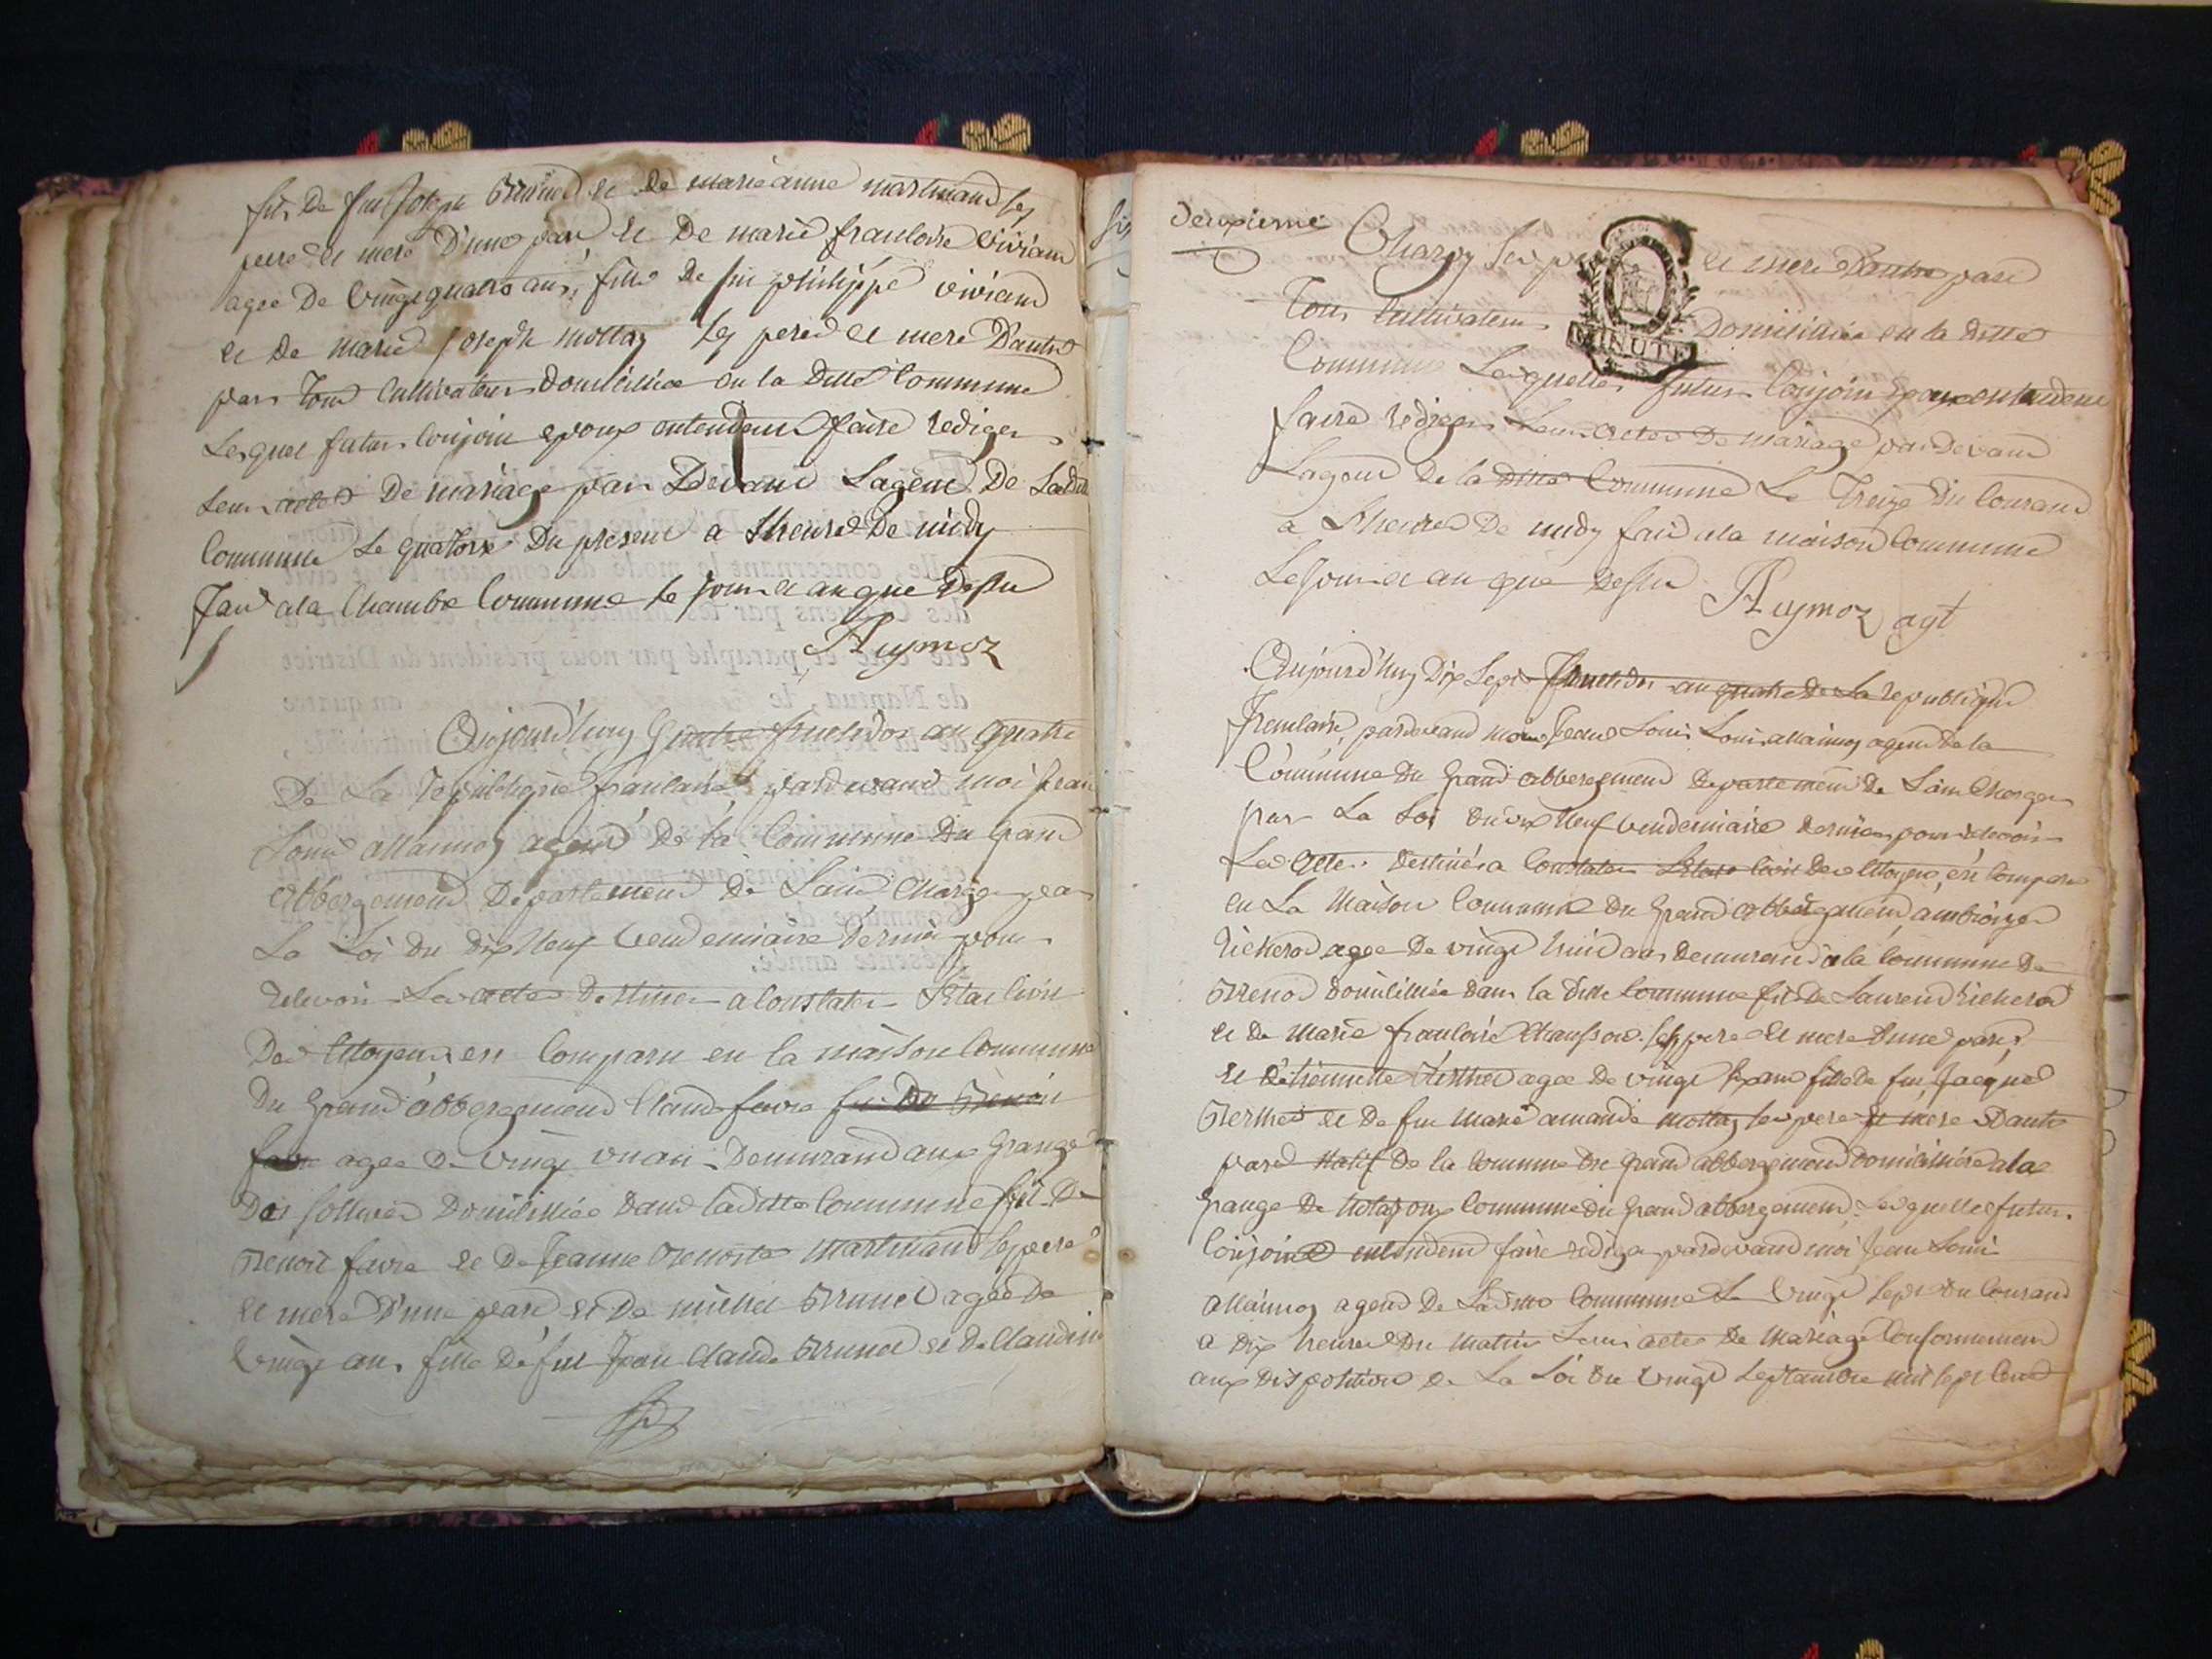 fils de feu Joseph Brunod et de marie anne martinand ses
pere et mere d'une part et de marie francoise viviand
agee de vingt quatre ans, fille de feu philippe viviand
et de marie joseph mottaz ses pere et mere d'autre
part tous cultivateurs domicillies en la ditte commune
Lesquel futur conjoin epoux entendent faire rediger
leur actes de mariage par devand Lagend de Laditte
Commune Le quatorze du presend a Lheure de midy
faid a la Chambre Commune le jour et an que dessu
Aymoz
Aujourd'huy quatre fructidor an quatre
De La republique francaise pardevand moi jean
Louis allaimoz agend de la Commune du grand
abbergemend Departemend de Lain Charge par
La Loi du dix Neuf Vendemiaire dernier pour
relevoir Les actes destines a Constater L'etat Civil
Des Citoyens est Comparu en la maison Commune
Du grand abbergemend Claude favre
agee de vingt un an Demeurand aux granges
Des domicilliee dans laditte Commune fils De
Benoit favre et de Jeanne Benoite martinand ses pere
et mere d'une pard et de michel Brunod agee de
vingt ans fille de feu Jean Claude Brunod et de Claudine
deuxieme
Charpy Ses et mere d'autre pard
Tous Cultivateurs Domicilliee en la ditte
MINUTE
Commune Lesquelles futurs Conjoin epoux entendent
faire rediger Leur actes de mariage pardevand
Lagend de la ditte Commune Le treize du Courand
a Lheure de midy faid a la maison Commune
Le jour et an que dessu
Aymoz agt
Aujourd'huy dix Sept fructidor an quatre de La republique
francaise pardevand moi Jean Louis Louis allaimoz agend de la
Commune du grand abbergemend departemend de Lain Charge
par La Loi du dix Neuf vendemiaire dernier pour relevoir
Les actes destines a Constater L'etat Civil des Citoyens est Comparu
en La Maison Commune du grand abbergemend ambroize
Richerod agee de vingt huid ans demeurand a la Commune de
Brenod domicilliee dans la ditte Commune fils de Laurend Richerod
et de Marie francoise ses pere et mere d'une pard
et agee de vingt six ans fille de feu Jacques
et de feu Marie amande mottaz ses pere et mere d'autre
pard Natif de la Commune du grand abbergemend domicilliee a la
grange de Commune du grand abbergemend Lesquelles futur
Conjoind entendend faire rediger pardevand moi Jean Louis
Allaimoz agend de Laditte Commune Le vingt sept du Courand
a dix heures du Matin Leur actes de Mariage Conformemend
aux dispositions de La Loi du vingt septambre mil sept Cend